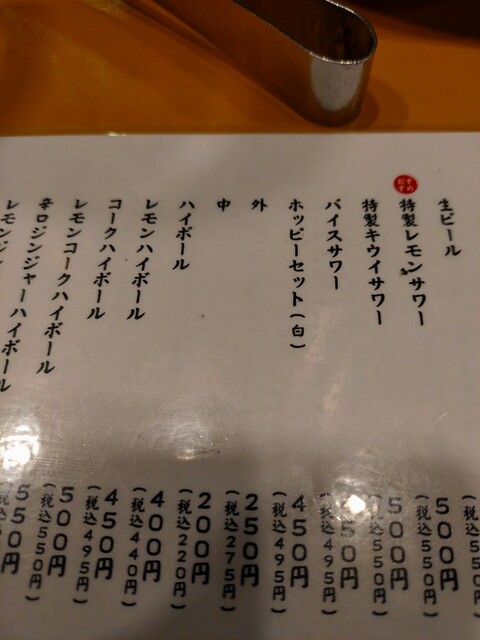 生ビール
おすすめ
特製レモンサワー
特製キウイサワー
バイスサワー
ホッピーセット(白)
外
中
ハイボール
レモンハイボール
コークハイボール
レモンコークハイボール
辛口ジンジャーハイボール
(税込55
500円
(税込550円)
500円
(税込550円)
50円
(税込495円)
450円
(税込495円)
250円
(税込275円)
200円
(税込220円)
400円
(税込440円)
450円
(税込495円)
500円
(税込550円)
550円